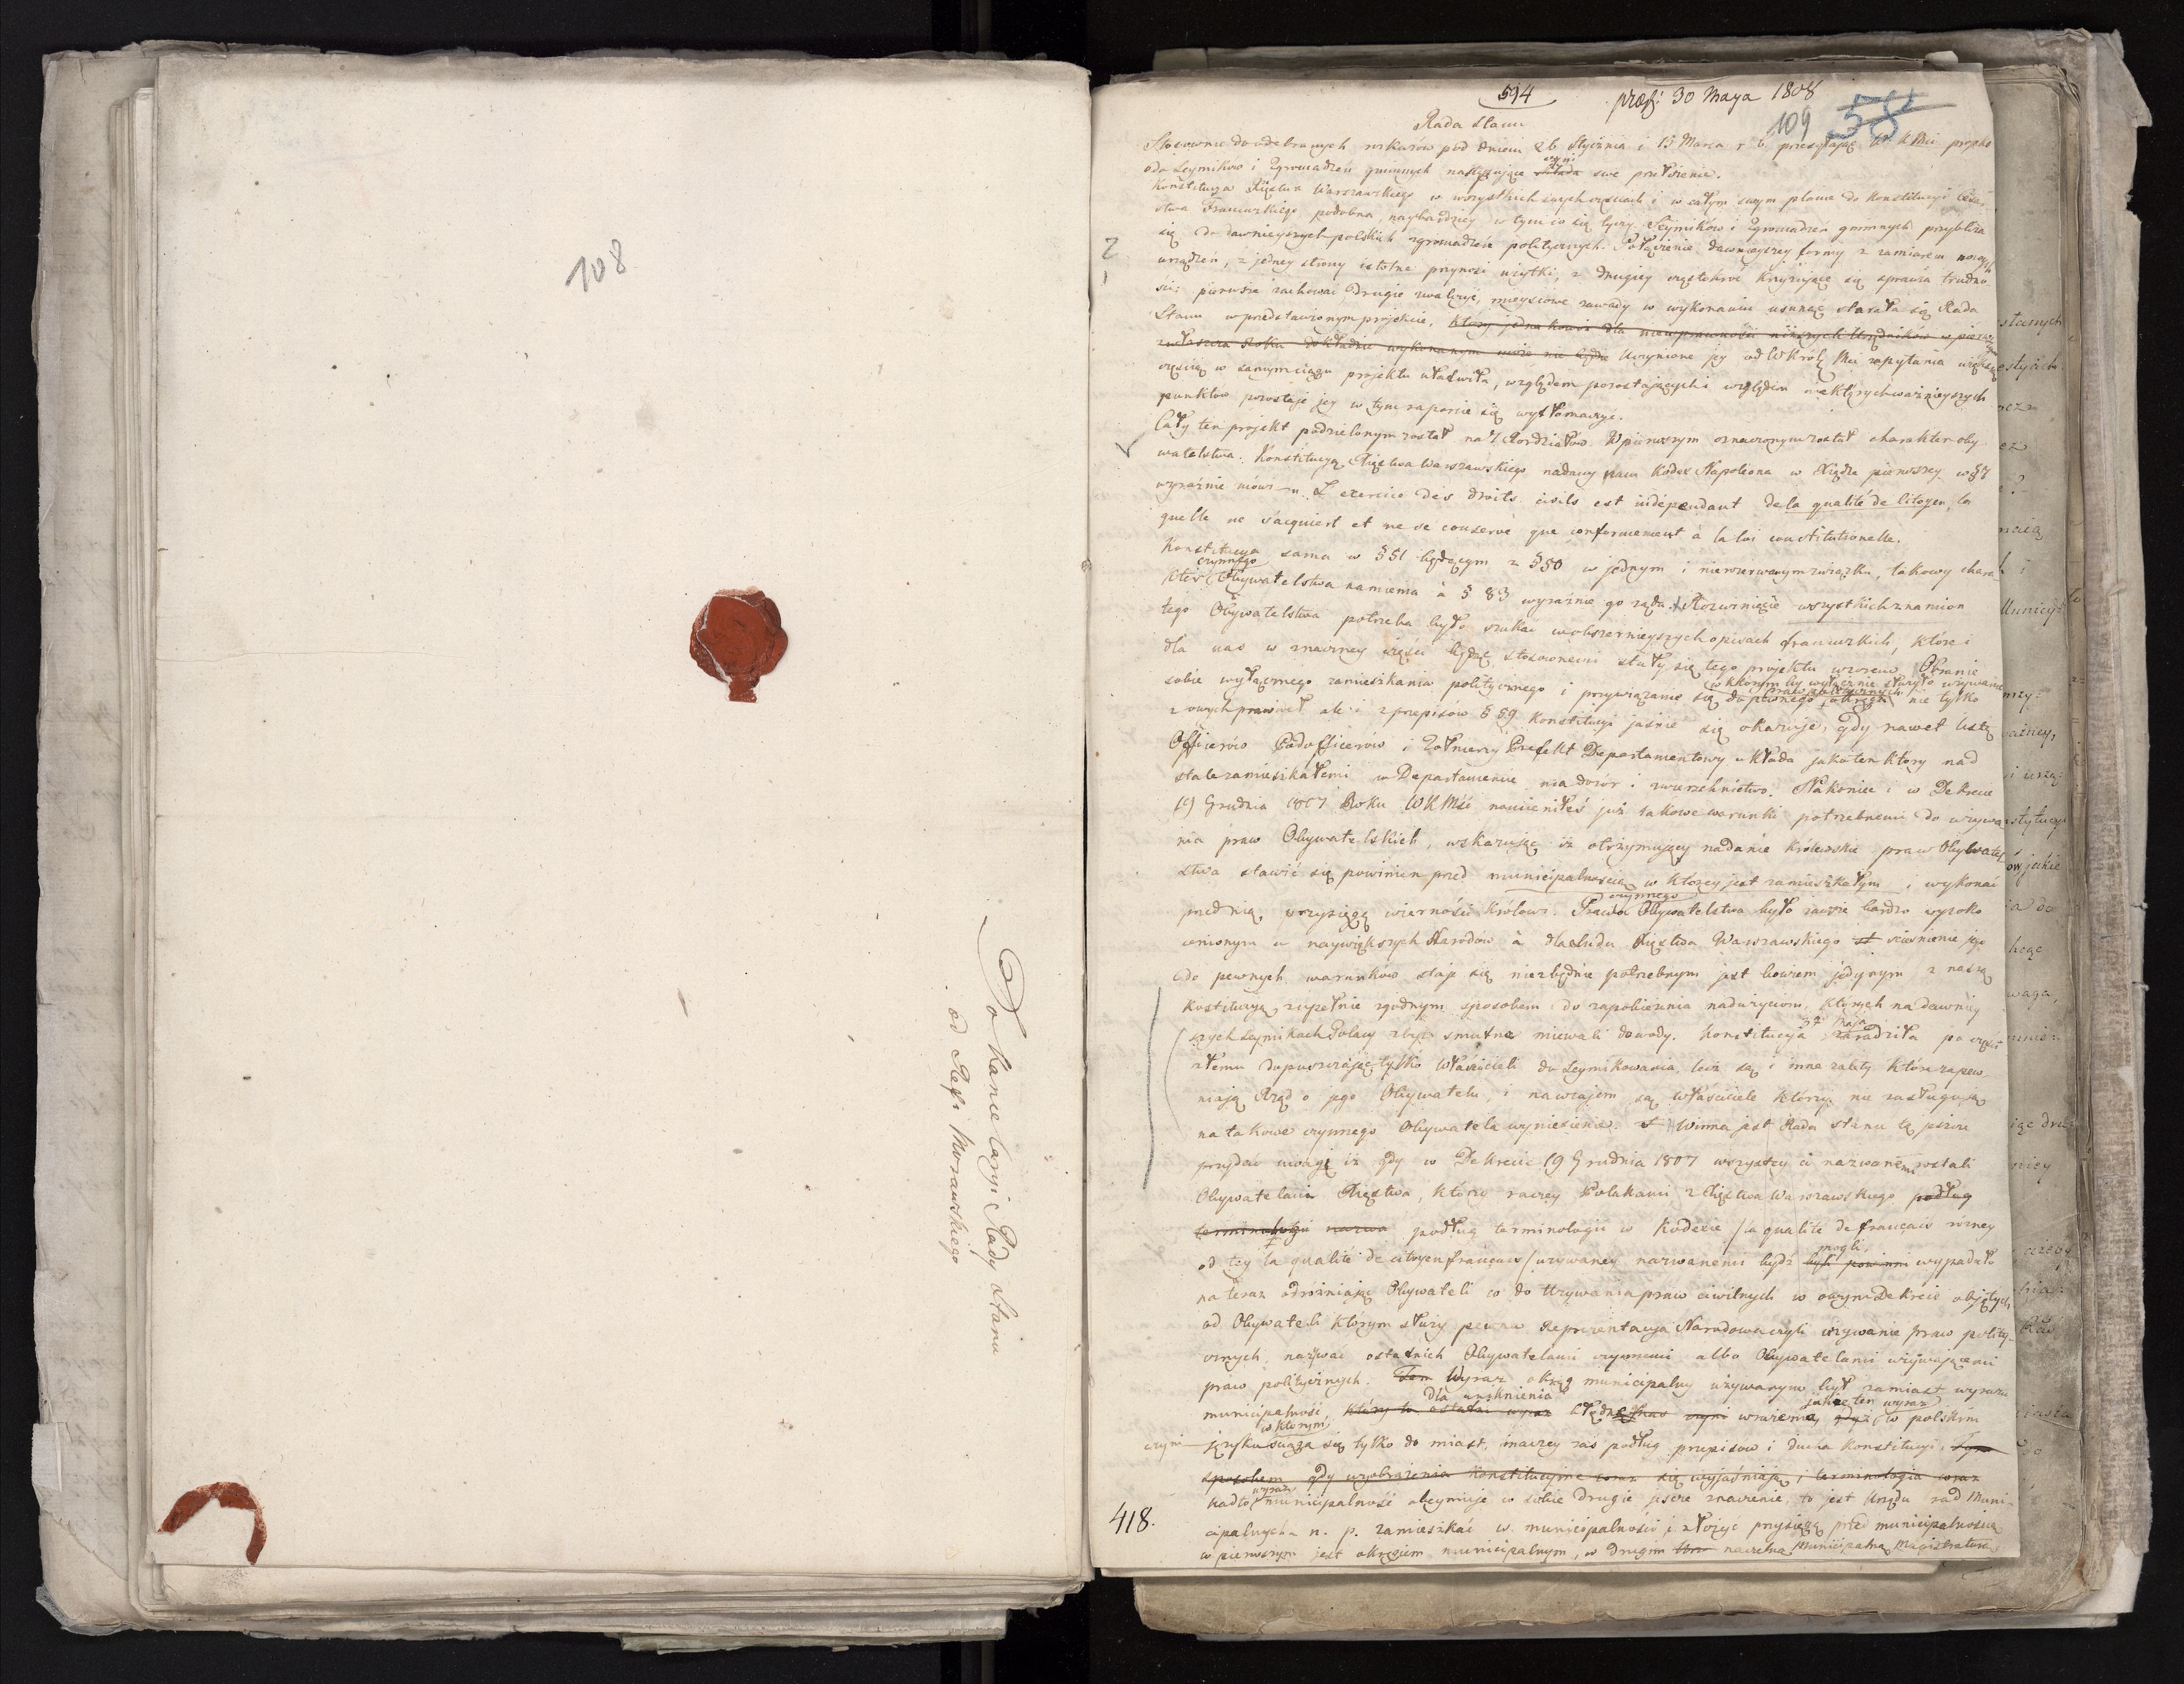 108
Do Kancelaryi Rady Stanu
od Ref: Morawskiego
594
præs: 30 Maya 1808
109 58
Rada Stanu
Stosownie do odebranych rozkazów pod dniem 26 Stycznia i 13 Marca r b. przesyłając W K Mci projekt
do Seymików i Zgromadzeń gminnych następujące składa czyni swe przełożenie.
Konstitucya Xięstwa Warszawskiego w wszystkich swych częściach i w całym swym planie do Konstitucyi Cesar-
stwa Francuzkiego podobna, naybardziey w tym co się tyczy Seymików i Zgromadzeń gminnych przybliża
się do dawnieyszych polskich zgromadzeń politycznych. Połączenie dawnieyszey formy z zamiarem nowych
urządzeń, z jedney strony istotne przynosi użytki, z drugiey częstokroć krzyżujące się sprawia trudno-
ści: pierwsze zachować drugie zwalczyć, mieyscowe zawady w wykonaniu usunąć starała się Rada
Stanu w przedstawionym projekcie, który jednakowoż dla niewprawności niższych Urzędników w pierw
zwłaszcza Roku dokładnie wykonanym może nie będzie Uczynione jey od W Król Mci zapytania większą
częścią w samym ciągu projektu ułatwiła, względem pozostających i względem niektórych ważnieyszych
punktów pozostaje jey w tym raporcie się wytłomaczyć.
Cały ten projekt podzielonym został na 7 Rozdziałów. W pierwszym oznaczonym został charakter oby-
watelstwa. Konstitucyą Xięstwa Warszawskiego nadany nam Kodex Napoleona w Xiędze pierwszey w § 7
wyraźnie mówi „ L'exercice des droits civils est indépendant de la qualité de Citoyen, la
quelle ne s'acquiert et ne se conserve que conformement à la loi constitutionelle.
Konstitucya sama w § 51 będącym z § 50 w jednym i nierozerwanym związku, takowy chara-
kter czynnego Obywatelstwa namienia à § 83 wyraźnie go żąda. Rozwinięcie wszystkich znamion
tego Obywatelstwa potrzeba było szukać w obszernieyszych opisach francuzkich, które i
dla nas w znaczney części będąc stosownemi stały się tego projektu wzorem. Obranie
sobie wyłącznego zamieszkania politycznego i przywiązanie się do pewnego okręgu w którym by wyłącznie służyło używanie praw politycznych nie tylko
z owych prawideł ale i z przepisów § 59 Konstitucyi jaśnie się okazuje, gdy nawet listę
Officerów Podofficerów i Żołnierzy Prefekt Departamentowy układa jako ten który nad
stale zamieszkałemi w Departamencie ma dozór i zwierzchnictwo. Nakoniec i w Dekrecie
19 Grudnia 1807 Roku WKMść namieniłeś już takowe warunki potrzebnemi do używa-
nia praw Obywatelskich, wskazując iż otrzymujący nadanie Królewskie praw Obywatel-
stwa stawić się powinien przed municipalnością w którey jest zamieszkałym i wykonać
przed nią przysięgę wierności Królowi. Prawo czynnego Obywatelstwa było zawsze bardzo wysoko
cenionym u naywiększych Narodów à dla ludu Xięstwa Warszawskiego st ścieśnienie jego
do pewnych warunków staje się niezbędnie potrzebnym jest bowiem jedynym z naszą
Kostitucyą zupełnie zgodnym sposobem do zapobieżenia nadużyciom, których na dawniey-
szych seymikach Polacy zbyt smutne miewali dowody. Konstitucya 3º Maja zaradziła po części
złemu dopuszczając tylko Właścicieli do Seymikowania, lecz są i inne zalety które zapew-
niają Rząd o jego Obywatelu, i nawzajem są właściciele którzy nie zasługują
na takowe czynnego Obywatela wyniesienie. Winna jest Rada stanu tę jeszcze
przydać uwagę iż gdy w Dekrecie 19 Grudnia 1807 wszyscy ci nazwanemi zostali
Obywatelami Xięstwa, którzy raczey Polakami z Xięstwa Warszawskiego podług
terminologii nazwa podług terminologii w Kodexie /la qualité de français rożney
od tey la qualité de citoyen français/ używaney nazwanemi bydź byli powinni mogli, wypadało
na teraz odróżniając Obywateli co do Używania praw cywilnych w owym Dekrecie objętych
od Obywateli którym służy pewna Reprezentacya Narodowa czyli używanie praw polity-
cznych, nazwać ostatnich Obywatelami czynnemi albo Obywatelami używającemi
praw politycznych. Ten Wyraz okręg municipalny używanym był zamiast wyrazu
municipalność, który to ostatni wyraz dla uniknienia błędnego czyni wrażenia, gdyż jakie ten wyraz w polskim
czyni języku w którym ściąga się tylko do miast, inaczey zaś podług przepisów i ducha Konstitucyi. Tym
sposobem gdy wyobrażenia Konstitucyine coraz się wyjaśniają i terminologia coraz
nadto wyraz municipalność obeymuje w sobie drugie jeszcze znaczenie, to jest Urzędu rad Muni-
cipalnych n. p. zamieszkać w municipalności i złożyć przysięgę przed municipalnością
w pierwszym jest okręgiem municipalnym, w drugim naczelną Municipalną Magistraturą
418.